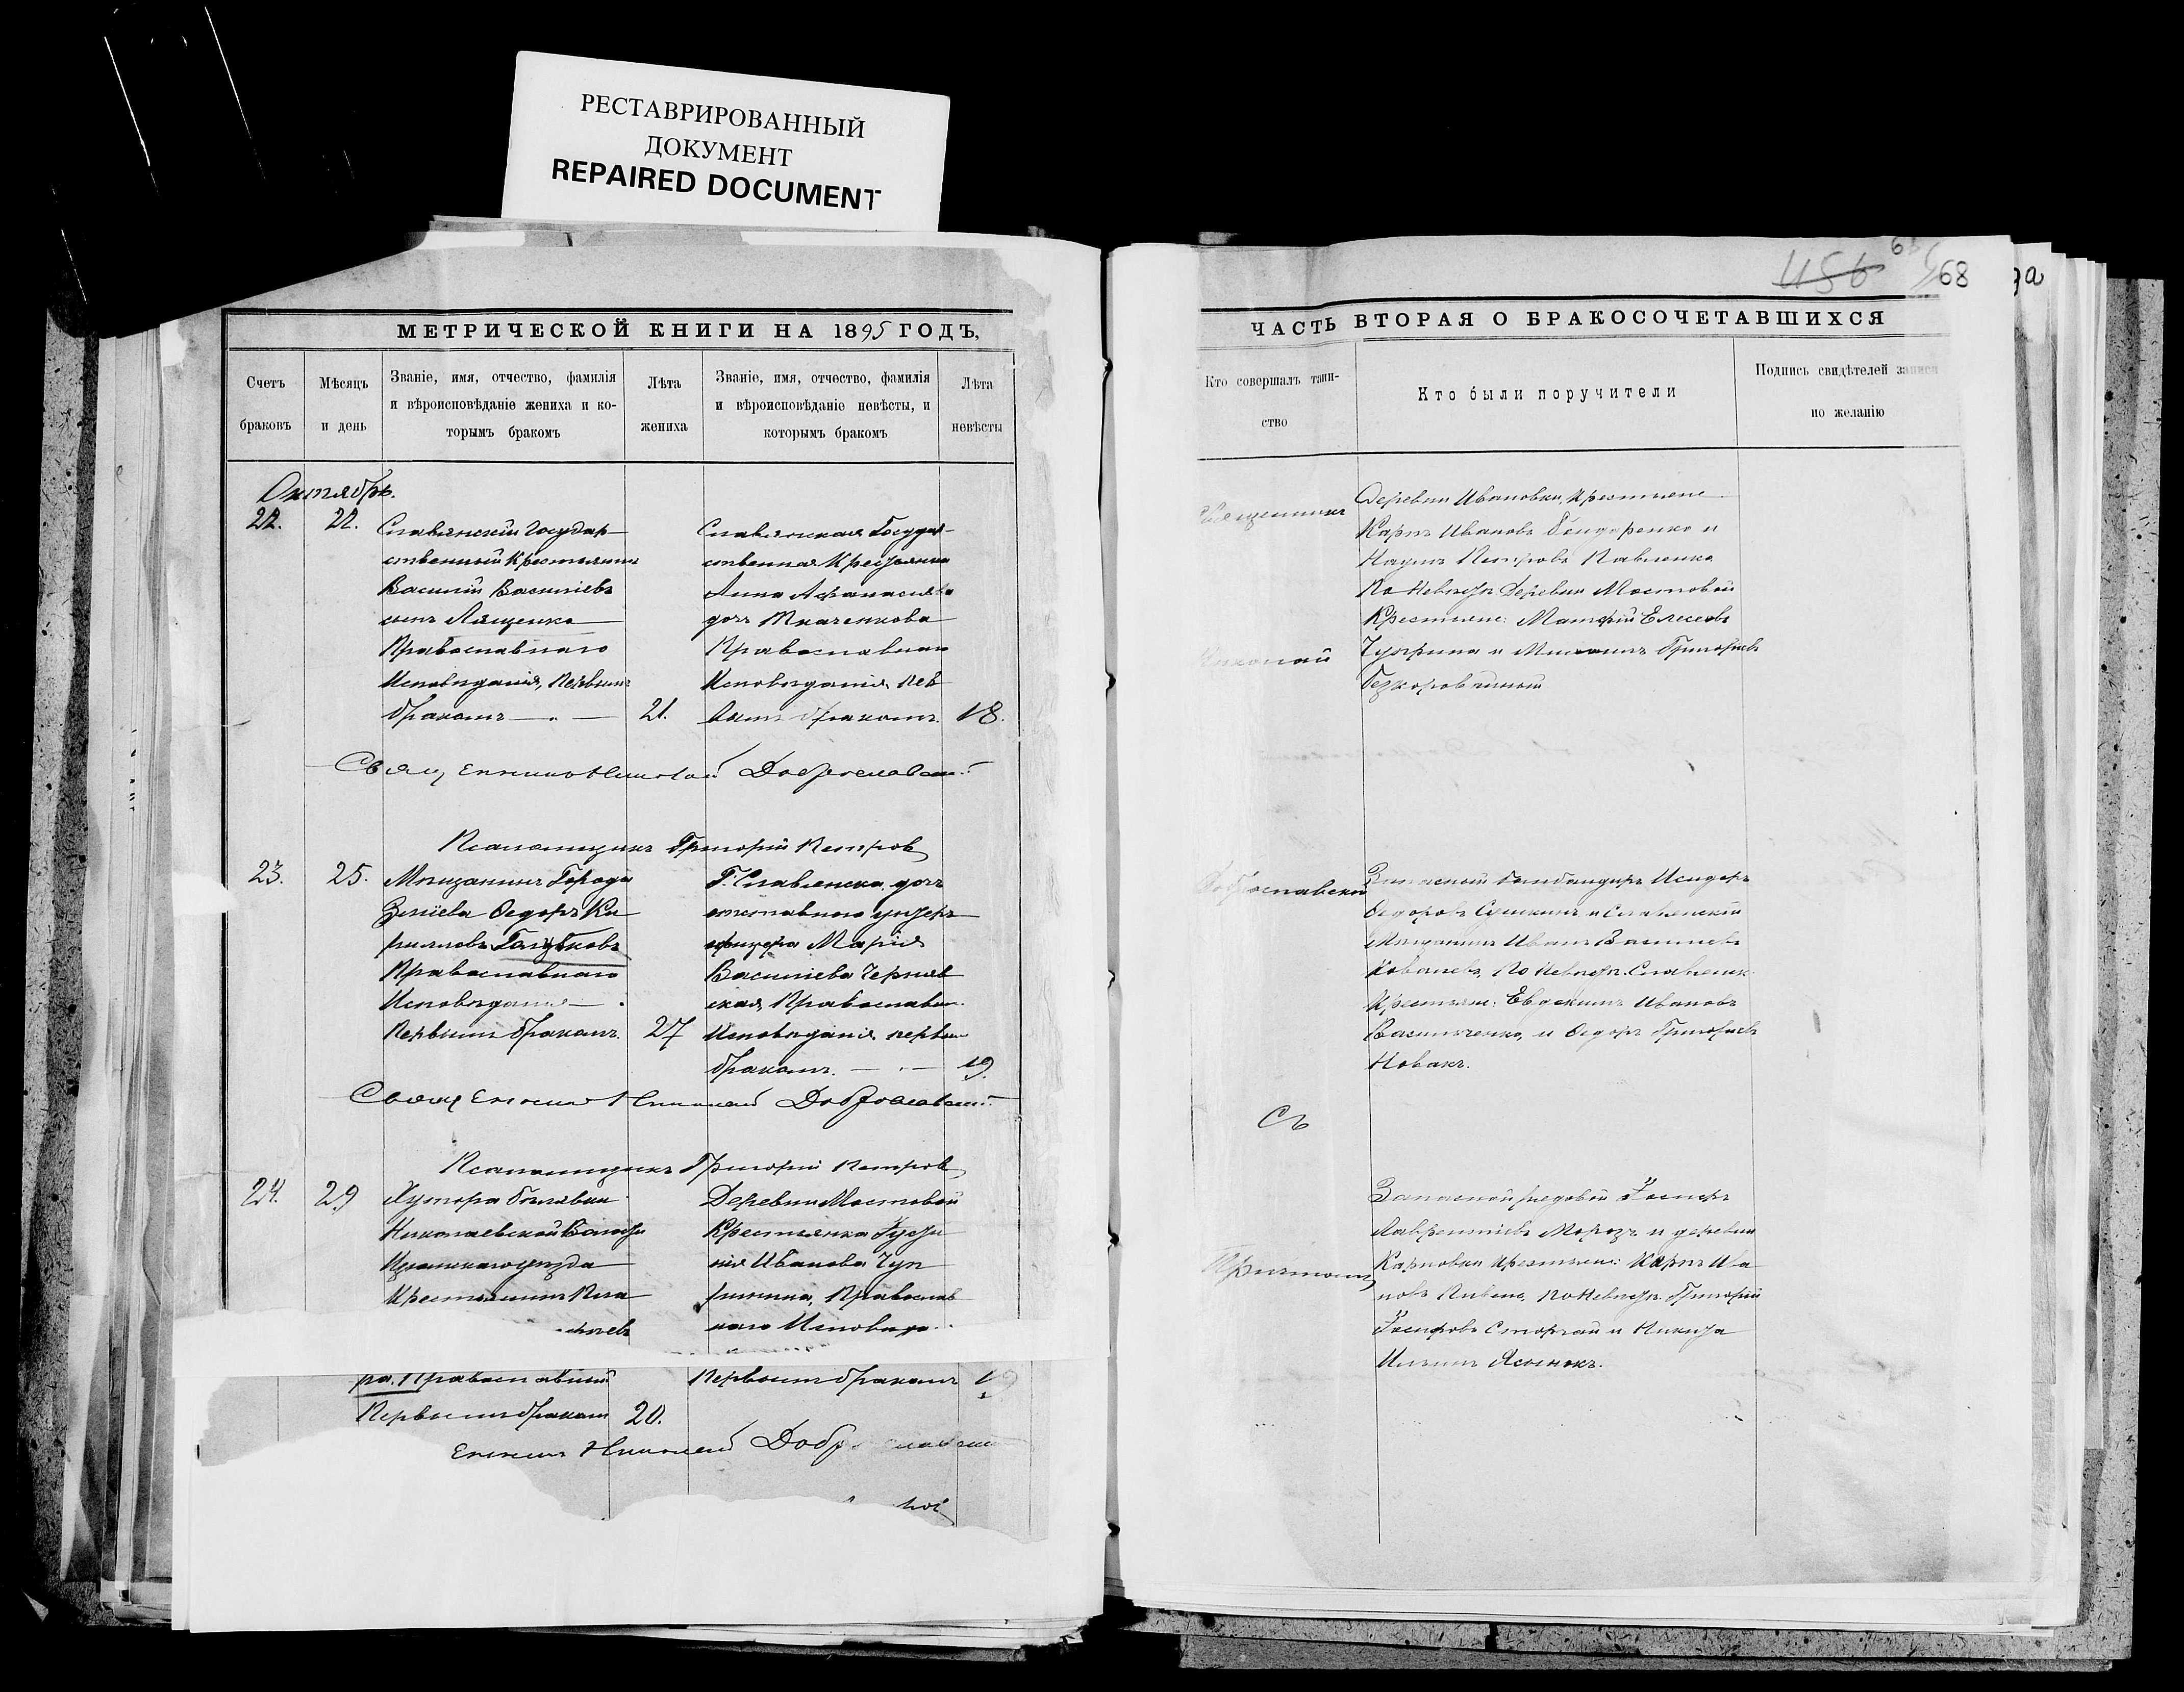 РЕСТАВРИРОВАННЫЙ
ДОКУМЕНТ
REPAIRED DOCUMENT
МЕТРИЧЕСКОЙ КНИГИ НА 1895 ГОДЪ,
Счетъ браковъ
Мѣсяцъ и день
Званіе, имя, отчество, фамилія
и вѣроисповѣданіе жениха и ко-
торымъ бракомъ
Лѣта жениха
Званіе, имя, отчество, фамилія
и вѣроисповѣданіе невѣсты, и
которымъ бракомъ
Лѣта невѣсты
Октябрь.
22. 22.
Славянскій Государ
ственный Крестьянинъ
Василій Васильевъ
сынъ Лященко
Православнаго
Исповѣданія, Первымъ
бракомъ 21.
Славянская Государ-
ственная Крестьянка
Анна Афанасьева
дочь Ткаченкова
Православнаго
Исповѣданія, пер
вымъ бракомъ. 18.
Священникъ Николай Доброславскій
Псаломщикъ Григорій Петровъ
23. 25.
Мѣщанинъ Города
Зміева Федоръ Ки
рилловъ Голубковъ
Православнаго
Исповѣданія
Первымъ бракомъ. 27
Г. Славянска дочь
отставного унтеръ
офицера Марія
Васильева Черняв
ская, Православн.
Исповѣданія, первым
бракомъ. 19.
Священникъ Николай Доброславскій
Псаломщикъ Григорій Петровъ
24. 29
Хутора
Николаевской Волости
Изюмскаго уѣзда
Крестьянинъ
ра. Православный
Первымъ бракомъ 20.
Деревни Мостовой
Крестьянка
нія Иванова Чуп
ринина, Православ
наго Исповѣда
Первымъ бракомъ 19
Николай Доброславскій
456 68
ЧАСТЬ ВТОРАЯ О БРАКОСОЧЕТАВШИХСЯ
Кто совершалъ таин-
ство
Кто были поручители
Подпись свидѣтелей записи
по желанію
Священникъ
Николай
Доброславскій
съ
Причтомъ
Деревни Ивановки, Крестьяне
Карпъ Ивановъ Бондаренко и
Наумъ Петровъ Павленко
По Невѣстѣ Деревни Мостовой
Крестьяне: Матфій Елисеевъ
Чуприна и Михаилъ Григорьевъ
Безкоровайный
Запасный бомбардиръ Исидоръ
Федоровъ Сушкинъ и Славянскій
Мѣщанинъ Иванъ Васильевъ
Ковалевъ, По Невѣстѣ. Славянск.
Крестьяне: Евдокимъ Ивановъ
Васильченко, и Федоръ Григорьевъ
Новакъ.
Запасной рядовой Іосифъ
Лаврентіевъ Морозъ и деревни
Карповки Крестьяне: Карпъ Ива
новъ По Невѣстѣ. Григорій
Іосифовъ и Никита
Ильинъ